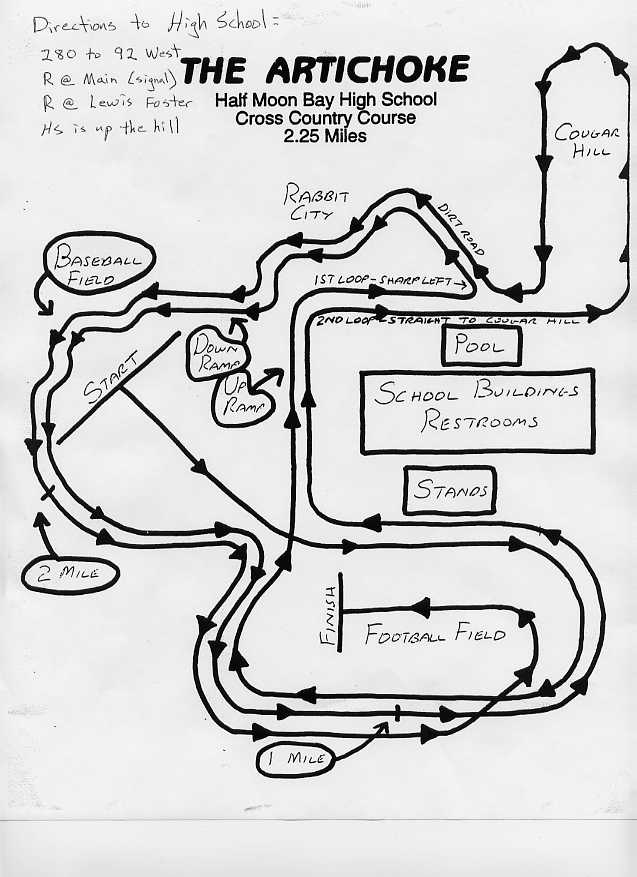 Directions to High School =
280 to 92 West
R @ Main (signal)
R @ Lewis Foster
HS is up the hill
THE ARTICHOKE
Half Moon Bay High School
Cross Country Course
2.25 Miles
COUGAR
HILL
RABBIT
CITY
DIRT ROAD
BASEBALL
FIELD
1ST LOOP-SHARP LEFT→
2ND LOOP-STRAIGHT TO COUGAR HILL
START
DOWN
RAMP
UP
RAMP
POOL
SCHOOL BUILDINGS
RESTROOMS
STANDS
2 MILE
FINISH
FOOTBALL FIELD
1 MILE